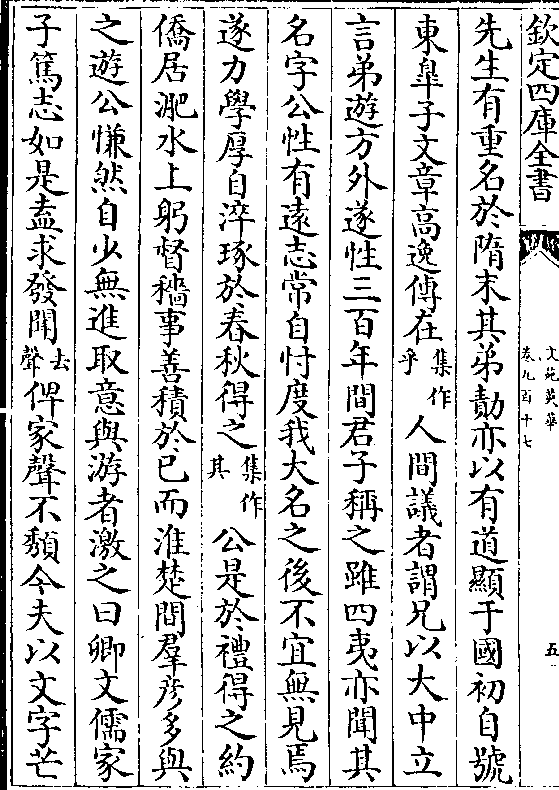 欽定四庫全書
文苑英華
卷九百十七
五
先生有重名於隋末其弟勣亦以有道顯于國初自號
東皐子文章高逸傳在集作乎人間議者謂兄以大中立
言弟遊方外遂性三百年間君子稱之雖四夷亦聞其
名字公性有遠志常自忖度我大名之後不宜無見焉
遂力學厚自淬琢於春秋得之集作其公是於禮得之約
僑居淝水上躬督穡事善積於已而淮楚間羣彦多與
之遊公慊然自少無進取意與游者激之曰卿文儒家
子篤志如是盍求發聞去聲俾家聲不頽今夫以文字芒